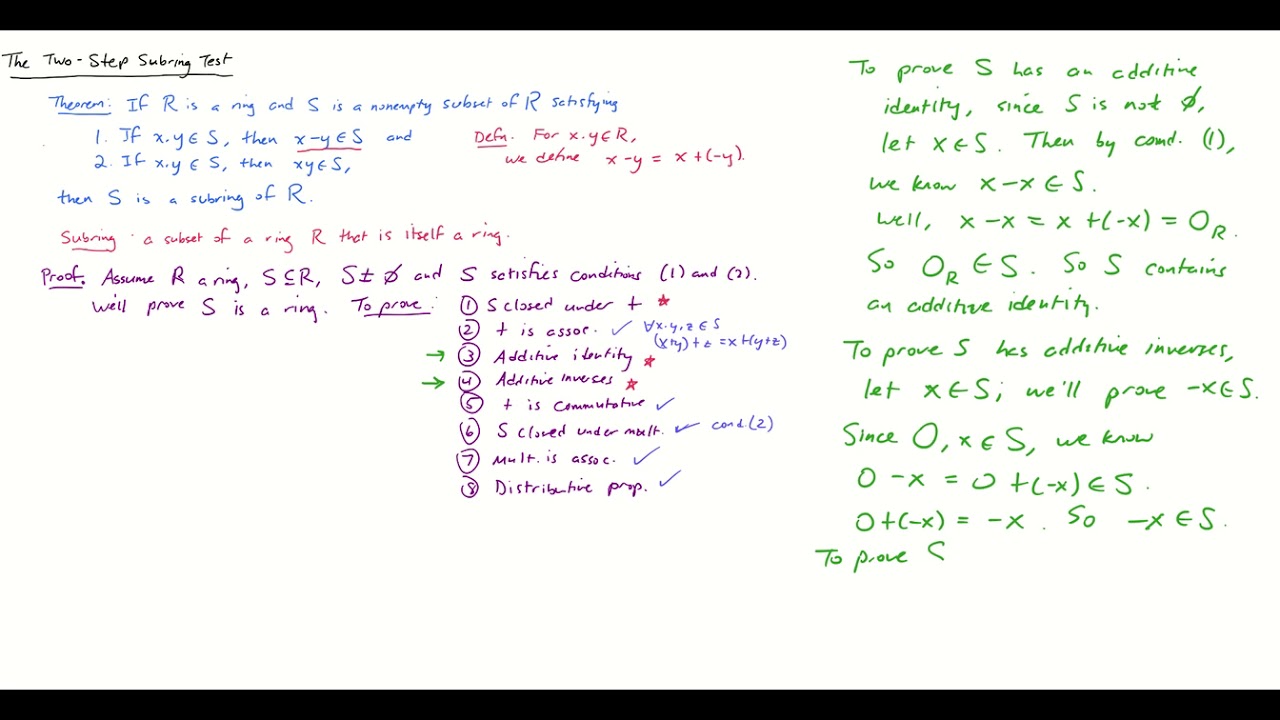 The Two-Step Subring Test
Theorem: If R is a ring and S is a nonempty subset of R satisfying
1. If x,y ∈ S, then x-y ∈ S and
2. If x,y ∈ S, then xy ∈ S,
then S is a subring of R.
Defn. For x,y ∈ R,
we define x-y = x+(-y).
Subring: a subset of a ring R that is itself a ring.
Proof. Assume R a ring, S ⊆ R, S ≠ ∅ and S satisfies conditions (1) and (2).
We'll prove S is a ring. To prove:
① S closed under + ★
② + is assoc. ✓ ∀x,y,z ∈ S
(x+y)+z = x+(y+z)
→ ③ Additive identity ★
→ ④ Additive inverses ★
⑤ + is commutative ✓
⑥ S closed under mult. ✓ cond.(2)
⑦ Mult. is assoc. ✓
⑧ Distributive prop. ✓
To prove S has an additive
identity, since S is not ∅,
let x ∈ S. Then by cond. (1),
we know x-x ∈ S.
Well, x-x = x+(-x) = 0_R.
So 0_R ∈ S. So S contains
an additive identity.
To prove S has additive inverses,
let x ∈ S; we'll prove -x ∈ S.
Since 0, x ∈ S, we know
0-x = 0+(-x) ∈ S.
0+(-x) = -x. So -x ∈ S.
To prove S